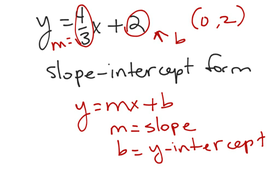 y = 4/3 x + 2 (0, 2)
m= b
slope-intercept form
y = mx + b
m = slope
b = y-intercept